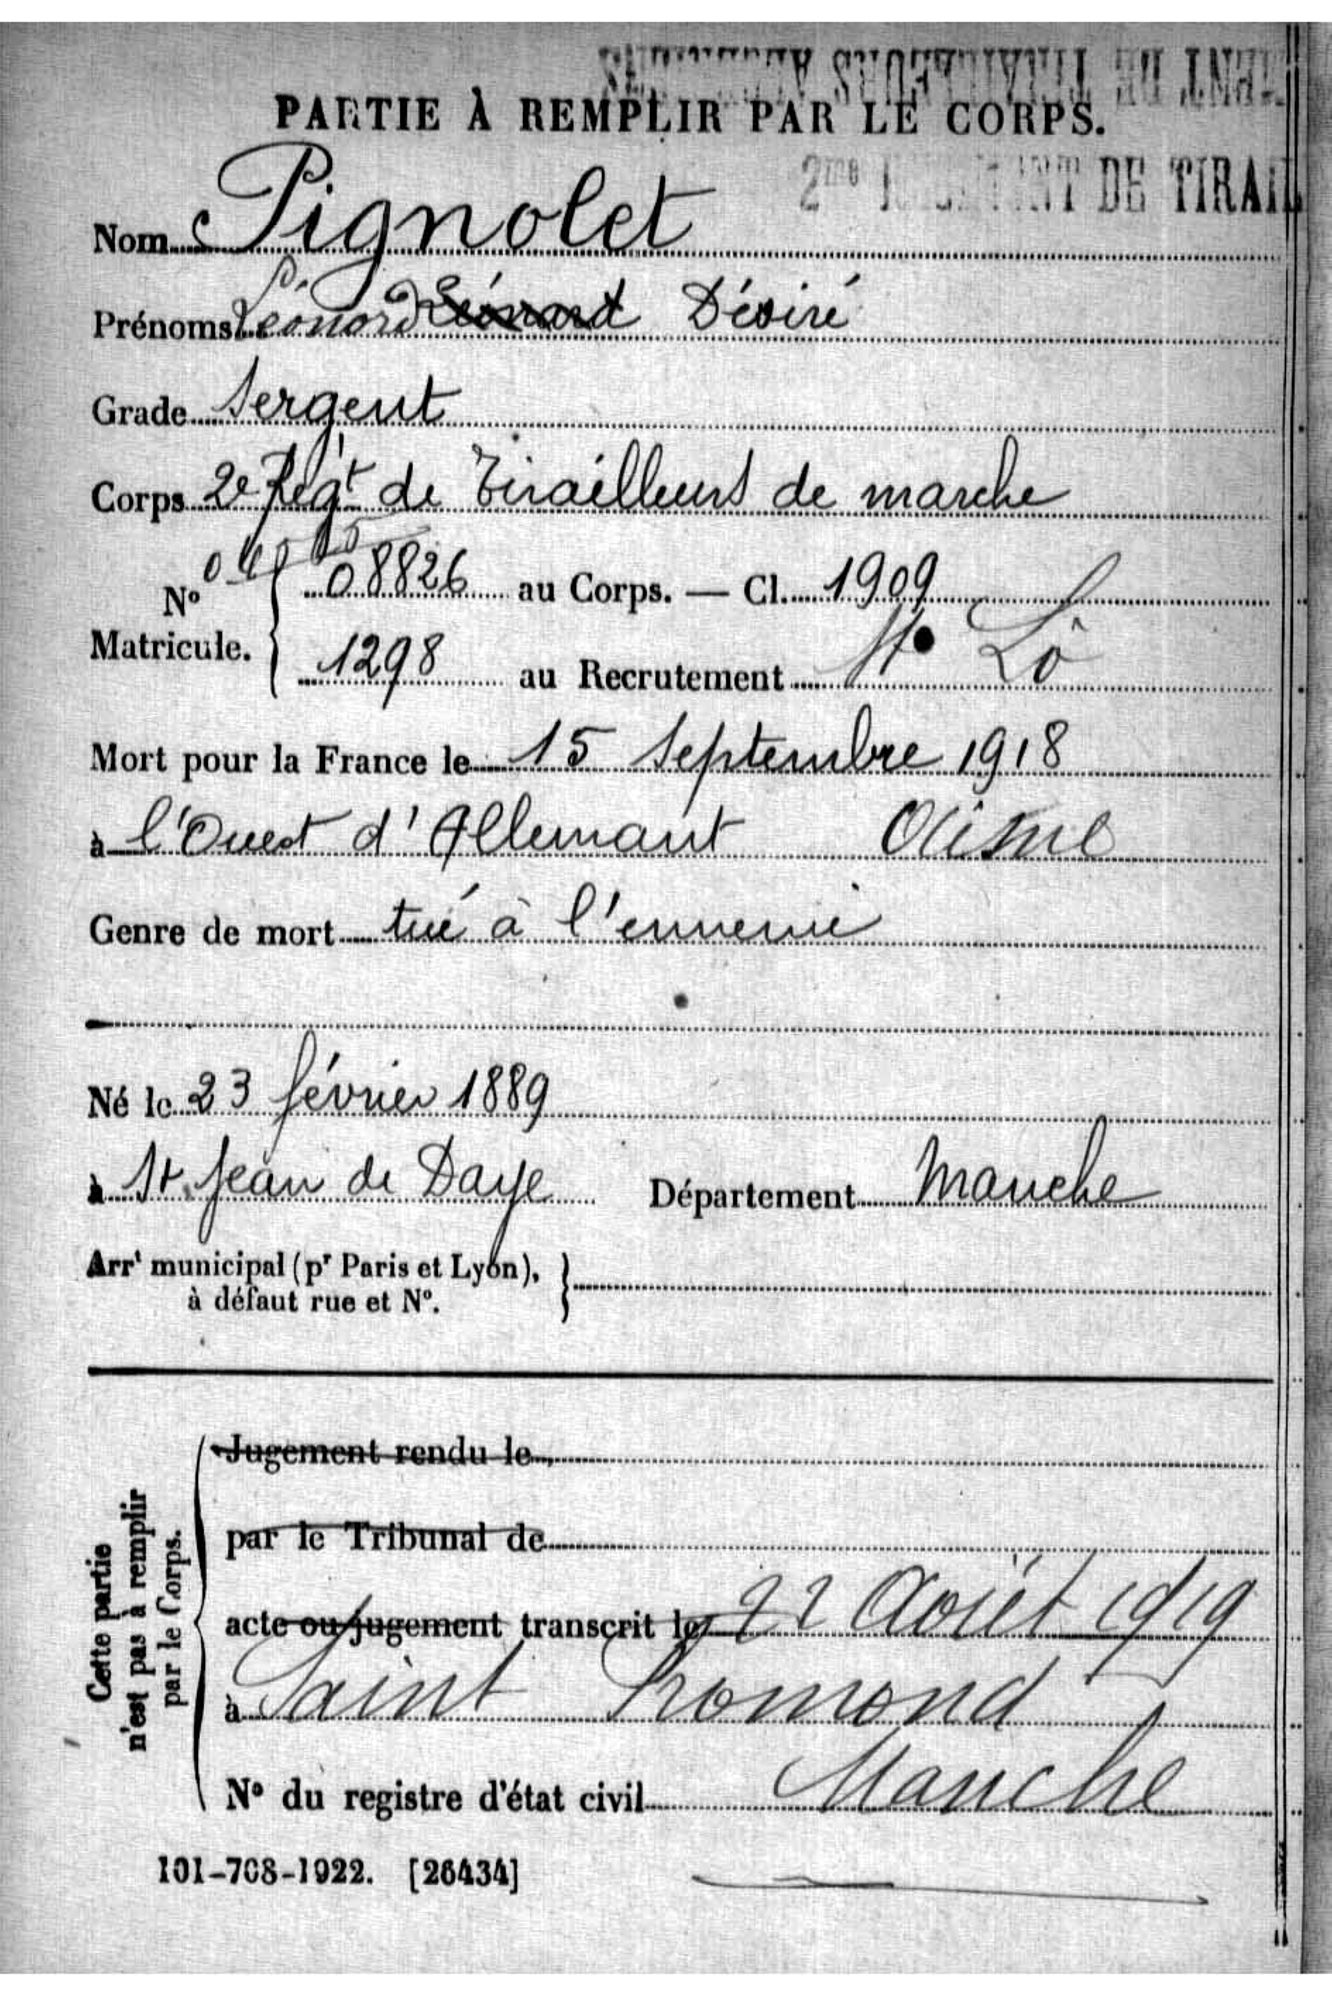 PARTIE À REMPLIR PAR LE CORPS.
2me DE TIRAIL
Nom Pignolet
Prénoms Léonord Léonard Désiré
Grade Sergent
Corps 2e Régt de Tirailleurs de marche
08826 au Corps. — Cl. 1909
No Matricule.
1298 au Recrutement St Lô
Mort pour la France le 15 Septembre 1918
à l'Ouest d'Allemant Aisne
Genre de mort tué à l'ennemi
Né le 23 février 1889
à St Jean de Daye Département Manche
Arrt municipal (pr Paris et Lyon),
à défaut rue et No.
Cette partie n'est pas à remplir par le Corps.
Jugement rendu le
par le Tribunal de
acte ou jugement transcrit le 22 Août 1919
à Saint Fromond
Manche
No du registre d'état civil
101-708-1922. [26434]